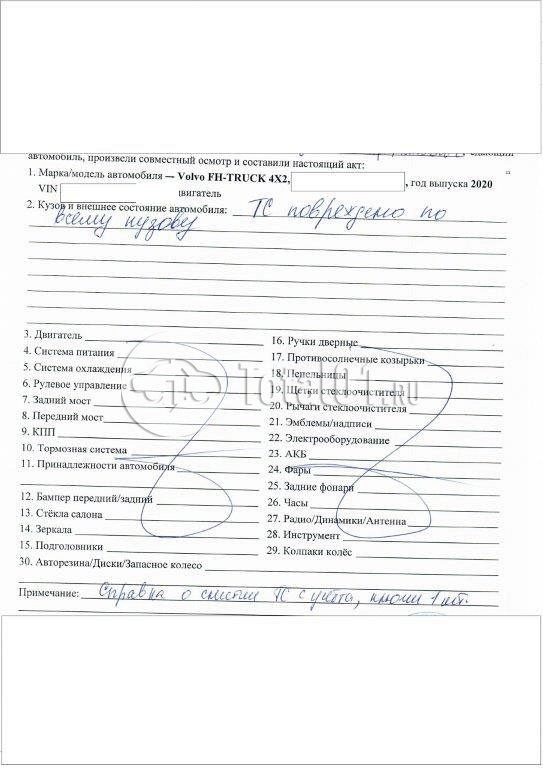 автомобиль, произвели совместный осмотр и составили настоящий акт:
1. Марка/модель автомобиля — Volvo FH-TRUCK 4X2, , год выпуска 2020
VIN вигатель
2. Кузов и внешнее состояние автомобиля: ТС повреждено по
всему кузову
3. Двигатель
4. Система питания
5. Система охлаждения
6. Рулевое управление
7. Задний мост
8. Передний мост
9. КПП
10. Тормозная система
11. Принадлежности автомобиля
12. Бампер передний/задний
13. Стёкла салона
14. Зеркала
15. Подголовники
16. Ручки дверные
17. Противосолнечные козырьки
18. Пепельницы
19. Щетки стеклоочистителя
20. Рычаги стеклоочистителя
21. Эмблемы/надписи
22. Электрооборудование
23. АКБ
24. Фары
25. Задние фонари
26. Часы
27. Радио/Динамики/Антенна
28. Инструмент
29. Колпаки колёс
30. Авторезина/Диски/Запасное колесо
Примечание: Справка о снятии ТС с учёта, ключи 1 шт.
Total01.RU